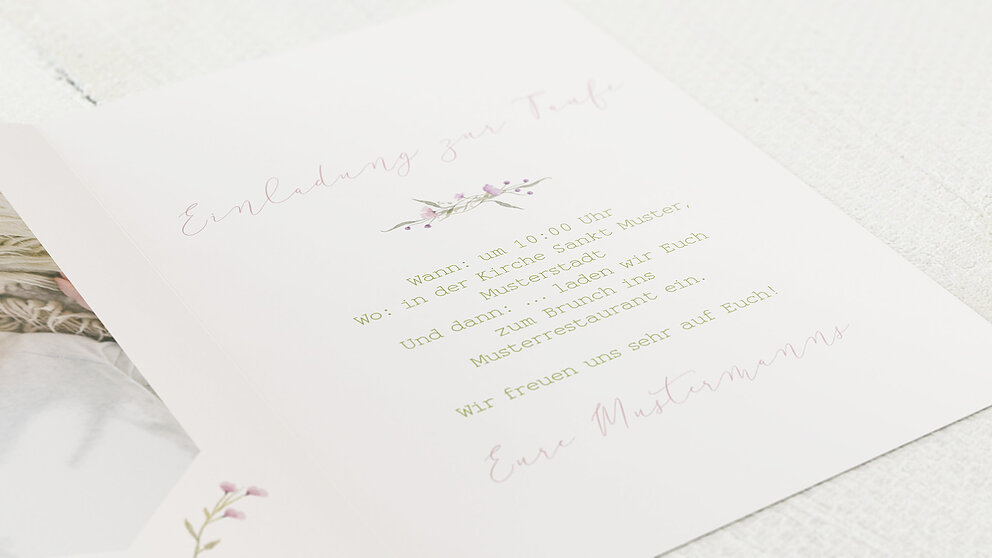 Einladung zur Taufe
Wann: um 10:00 Uhr
Wo: in der Kirche Sankt Muster,
Musterstadt
Und dann: ... laden wir Euch
zum Brunch ins
Musterrestaurant ein.
Wir freuen uns sehr auf Euch!
Eure Mustermanns